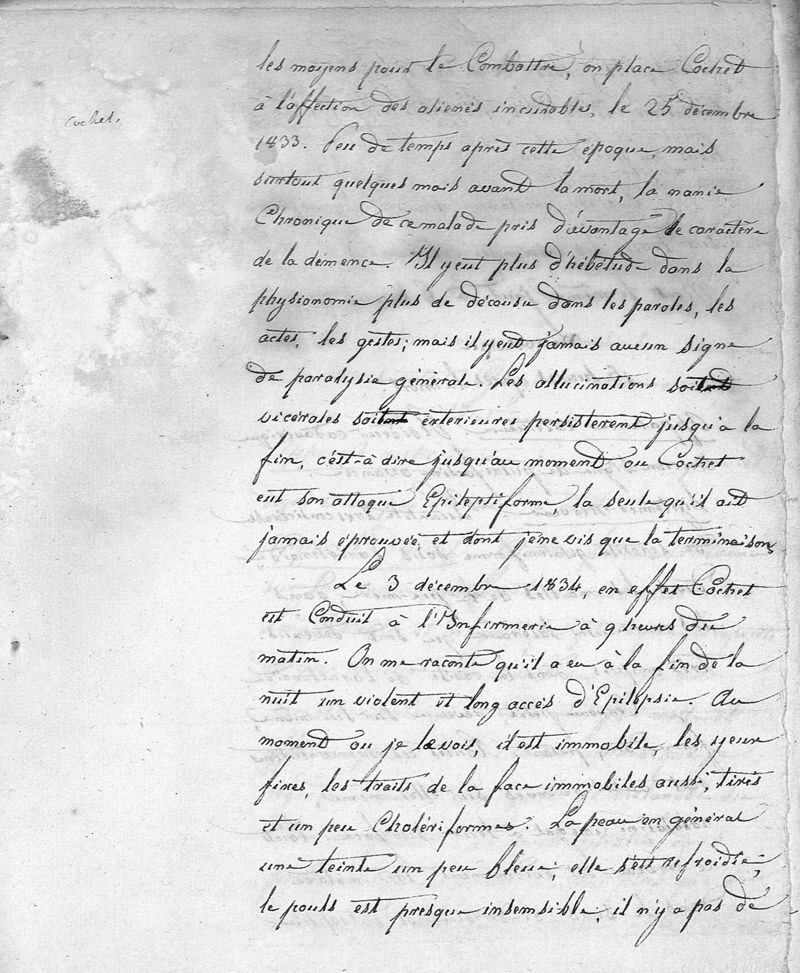 Cochet.
les moyens pour le Combattre, on place Cochet
à l'affection des alienés incurables, le 25 décembre
1833. Peu de temps après cette epoque, mais
surtout quelques mois avant la mort, la manie
Chronique de ce malade pris d'avantage le caractère
de la démence. Il y eut plus d'hébétude dans la
physionomie plus de décousu dans les paroles, les
actes, les gestes; mais il y eut jamais aucun signe
de paralysie générale. Les allucinations soit
vicérales soit exterieures persisterent jusqu'à la
fin, c'est-à dire jusqu'au moment ou Cochet
eut son attaque Epileptiforme, la seule qu'il ait
jamais éprouvée, et dont je ne vis que la terminaison,
Le 3 décembre 1834, en effet Cochet
est Conduit à l'Infirmerie à 9 heurs du
matin. On me raconte qu'il a eu à la fin de la
nuit un violent et long accès d'Epilepsie. Au
moment ou je le vois, il est immobile, les yeux
fixes, les traits de la face immobiles aussi, tirés
et un peu Cholériformes. La peau en général
une teinte un peu bleue; elle s'est refroidie;
le pouls est presque insensible; il n'y a pas de